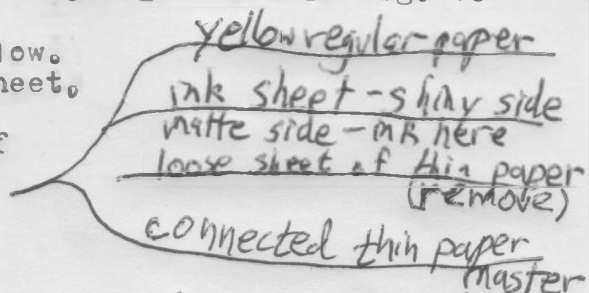 yellow regular paper
low.
heet.
ink sheet - shiny side
matte side - ink here
f
loose sheet of thin paper
(remove)
connected thin paper
master